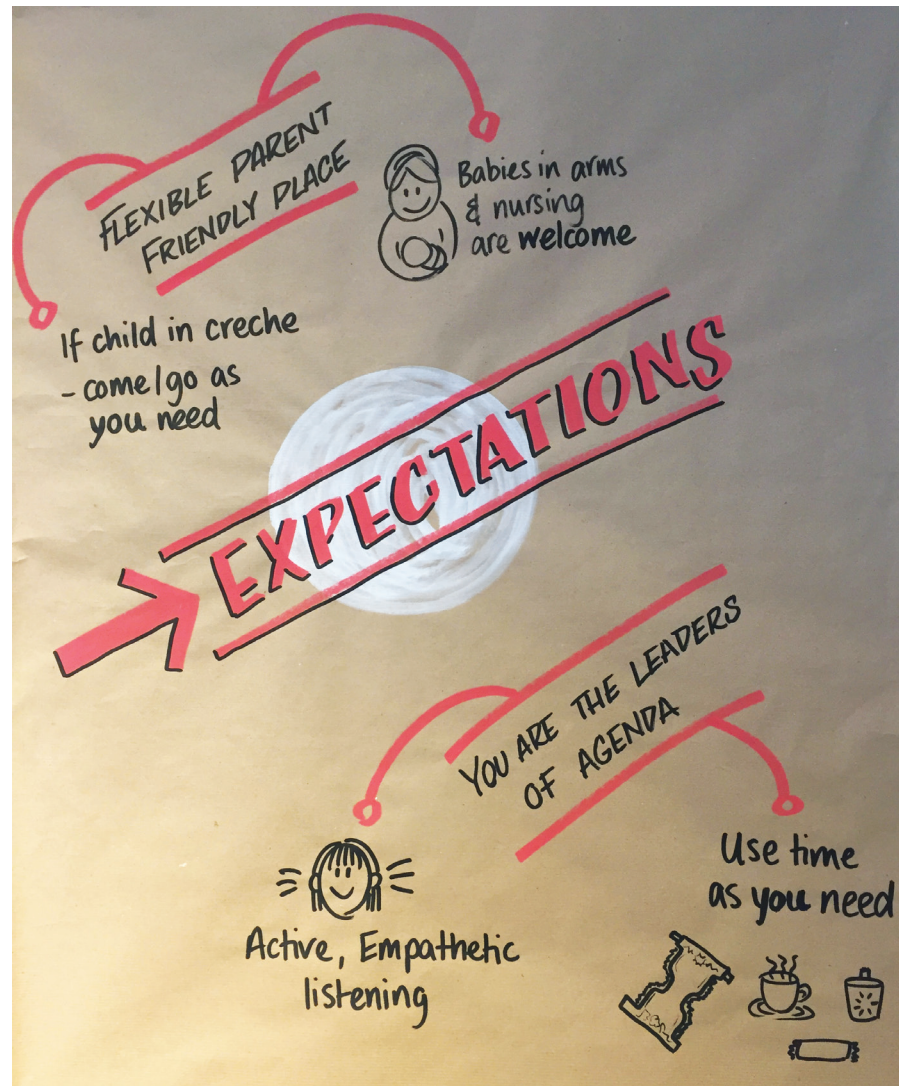 FLEXIBLE PARENT
FRIENDLY PLACE
Babies in arms
& nursing
are welcome
If child in creche
- come/go as
you need
EXPECTATIONS
YOU ARE THE LEADERS
OF AGENDA
Active, Empathetic
listening
Use time
as you need